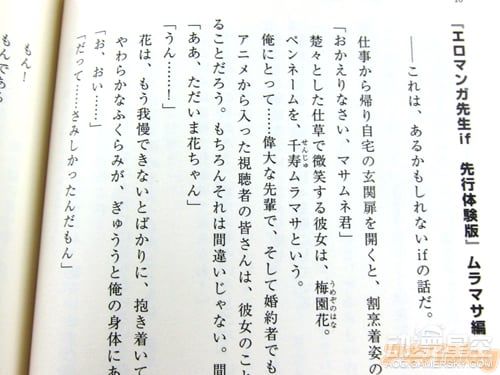 『エロマンガ先生if　先行体験版』ムラマサ編
――これは、あるかもしれないifの話だ。
仕事から帰り自宅の玄関扉を開くと、割烹着姿の
「おかえりなさい、マサムネ君」
楚々とした仕草で微笑する彼女は、梅園花。
うめぞのはな
ペンネームを、千寿ムラマサという。
せんじゅ
俺にとって……偉大な先輩で、そして婚約者でも
アニメから入った視聴者の皆さんは、彼女のこと
ることだろう。もちろんそれは間違いじゃない。間
「ああ、ただいま花ちゃん」
「うん……！」
花は、もう我慢できないとばかりに、抱き着いて
やわらかなふくらみが、ぎゅうと俺の身体にあ
「お、おい……」
「だって……さみしかったんだもん」
もん！
もんである